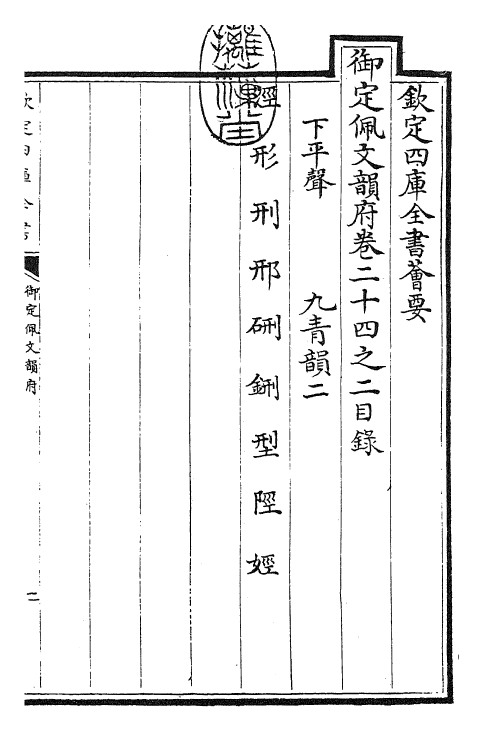 欽定四庫全書薈要
御定佩文韻府卷二十四之二目錄
下平聲　九青韻二
經　形　刑　邢　硎　鉶　型　陘　娙
御定佩文韻府